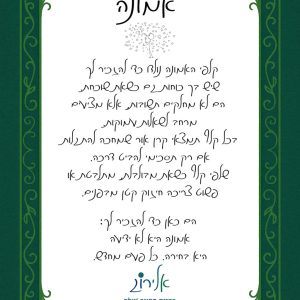 אמונה
קלפי האמונה נולדו כדי להזכיר לך
שיש בך כוחות, גם כשאת שוכחת.
הם לא מחלקים תשובות, אלא מציעים
מרחב לשאלות עמוקות.
בכל קלף תמצאי קרן אור שמחכה להתגלות,
אם רק תסכימי להביט דרכה.
שלפי קלף כשאת מבולבלת, מתלבטת או
פשוט צריכה חיזוק קטן מבפנים.
הם כאן כדי להזכיר לך:
אמונה היא לא ידיעה
היא בחירה. כל פעם מחדש.